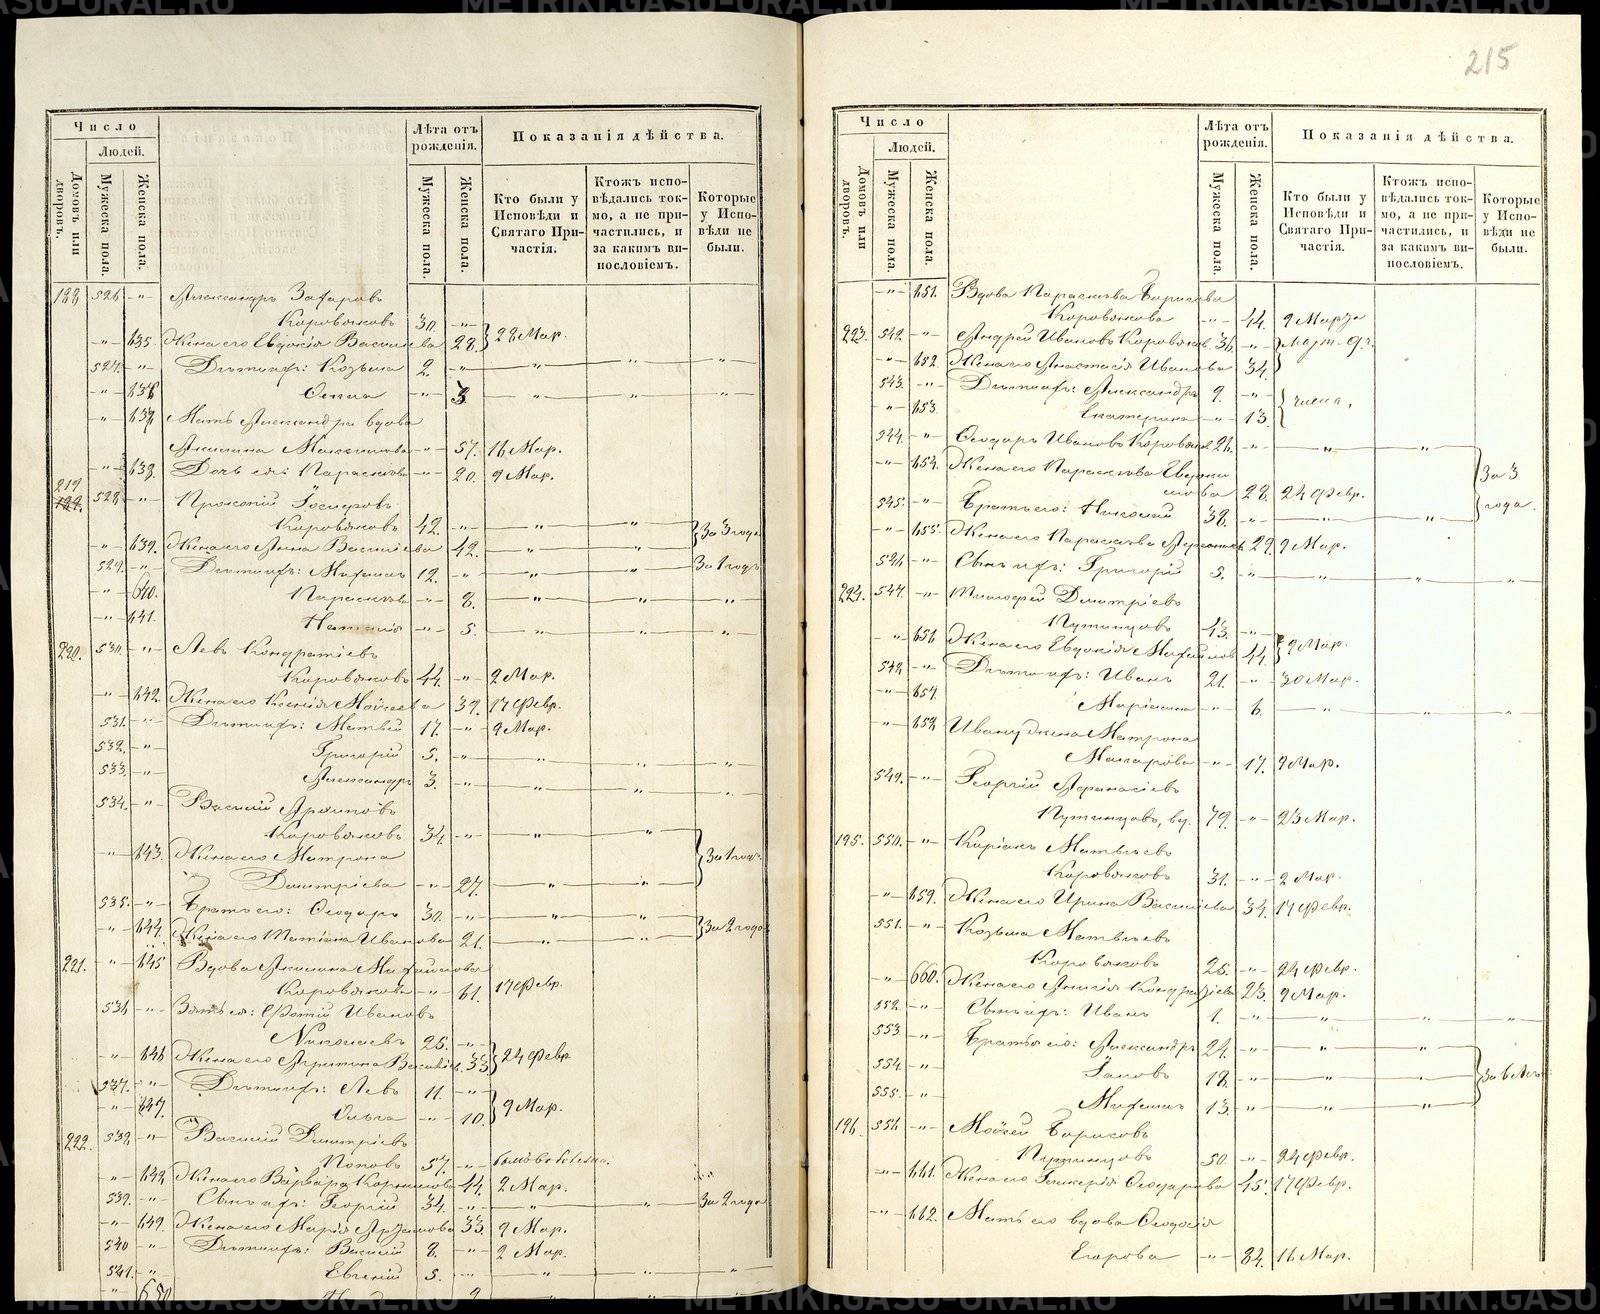 215
Число
Людей.
Домовъ или дворовъ.
Мужеска пола.
Женска пола.
Лѣта отъ рожденія.
Мужеска пола.
Женска пола.
Показанія дѣйства.
Кто были у Исповѣди и Святаго Причастія.
Ктожъ исповѣдались токмо, а не причастились, и за какимъ винословіемъ.
Которые у Исповѣди не были.
526 -"- Александръ Захаровъ
Коровяковъ 30. -"- 28 Мар.
-"- 635 Жена его Евдокія Василиева 28.
527 -"- Дѣти ихъ: Козьма 2. -"- " " "
-"- 636 3 " " "
-"- 637 Мать Александра вдова
Акилина Максимова -"- 57. 16 Мар.
-"- 638. Дочь ея: Параскева -"- 20. 9 Мар.
219 528 -"- Прокопій
Коровяковъ 42. -"- " " За 3 года
-"- 639. Жена его Анна Василиева 42. " "
529. -"- Дѣти ихъ: Михаилъ 12. -"- " " За 1 годъ
-"- 640. Параскева -"- 8. " " "
-"- 641. Наталія -"- 5. " " "
220. 530. -"- Левъ Кондратіевъ
Коровяковъ 44. -"- 2 Мар.
-"- 642. Жена его Ксенія Моисеева 39. 17 Февр.
531. -"- Дѣти ихъ: Матвей 17. -"- 9 Мар.
532. -"- Григорій 5. -"- " " "
533. -"- Александръ 3. -"- " " "
534. -"- Василій Архиповъ
Коровяковъ 34. -"- " " За 1 годъ
-"- 643. Жена его Матрона
Димитріева -"- 27. " "
535. -"- Братъ его: Ѳеодоръ 30. -"- " " За 2 года
-"- 644. Жена его Татіана Иванова 21. " "
221. -"- 645 Вдова Акилина Михайлова
Коровякова -"- 61. 17 Февр.
536 -"- Зять ея: Фотій Ивановъ
Николаевъ 25. -"- 24 Февр
-"- 646 Жена его 33
537. -"- Дѣти ихъ: Левъ 11. -"- 9 Мар.
-"- 647. Ольга -"- 10.
222. 538. -"- Василій Димитріевъ
Поповъ 57. -"-
-"- 648 Жена его Варвара Корнилова 44. 2 Мар.
539. -"- Сынъ ихъ: Георгій 34. -"- " За 2 года
-"- 649. Жена его Марія 33. 9 Мар.
540 -"- Дѣти ихъ: Василій 8. -"- 2 Мар.
541. -"- Евгеній 5. -"- " " "
-"- 650
Число
Людей.
Домовъ или дворовъ.
Мужеска пола.
Женска пола.
Лѣта отъ рожденія.
Мужеска пола.
Женска пола.
Показанія дѣйства.
Кто были у Исповѣди и Святаго Причастія.
Ктожъ исповѣдались токмо, а не причастились, и за какимъ винословіемъ.
Которые у Исповѣди не были.
-"- 651. Вдова Параскева Борисова
Коровякова -"- 44. 9 Марта
223. 542. -"- Андрей Ивановъ Коровяковъ 36. -"- Март. 9.
-"- 652. Жена его Анастасія Иванова 34.
543. -"- Дѣти ихъ: Александръ 9. -"- числа.
-"- 653. Екатерина -"- 13.
544. -"- Ѳеодоръ Ивановъ Коровяковъ 26. -"- " " За 3 года.
-"- 654. Жена его Параскева
28. 24 Февр.
545. -"- Братъ его: Николай 38. -"- " "
-"- 655. Жена его Параскева 29. 9 Мар.
546 -"- Сынъ ихъ: Григорій 3. -"- " " "
224. 547. -"- Тимофей Димитріевъ
Путинцовъ 43. -"- 9 Мар.
-"- 656 Жена его Евдокія Михайлова 44.
548. -"- Дѣти ихъ: Иванъ 21. -"- 30 Мар.
-"- 657. -"- 6. " "
-"- 658. Ивану жена Матрона
Макарова -"- 17. 9 Мар.
549. -"- Георгій Афанасіевъ
Путинцовъ, вд. 79. -"- 23 Мар.
195. 550. -"- Киріакъ Матвѣевъ
Коровяковъ 31. -"- 2 Мар.
-"- 659. Жена его Ирина Василиева 34. 17 Февр.
551. -"- Козьма Матвѣевъ
Коровяковъ 25. -"- 24 Февр.
-"- 660. Жена его Анисія Кондратіева 23. 9 Мар.
552. -"- Сынъ ихъ: Иванъ 1. -"- " " "
553. -"- Братья его: Александръ 24. -"- " "
554. -"- Іаковъ 18. -"- " "
555. -"- Михаилъ 13. -"- " "
196. 556 -"- Моисей Борисовъ
Путинцовъ 50. -"- 24 Февр.
-"- 661. Жена его Гликерія Ѳеодорова 45. 17 Февр.
-"- 662. Мать его вдова Ѳеодосія
Егорова -"- 84. 16 Мар.
METRIKI.GASU-URAL.RU